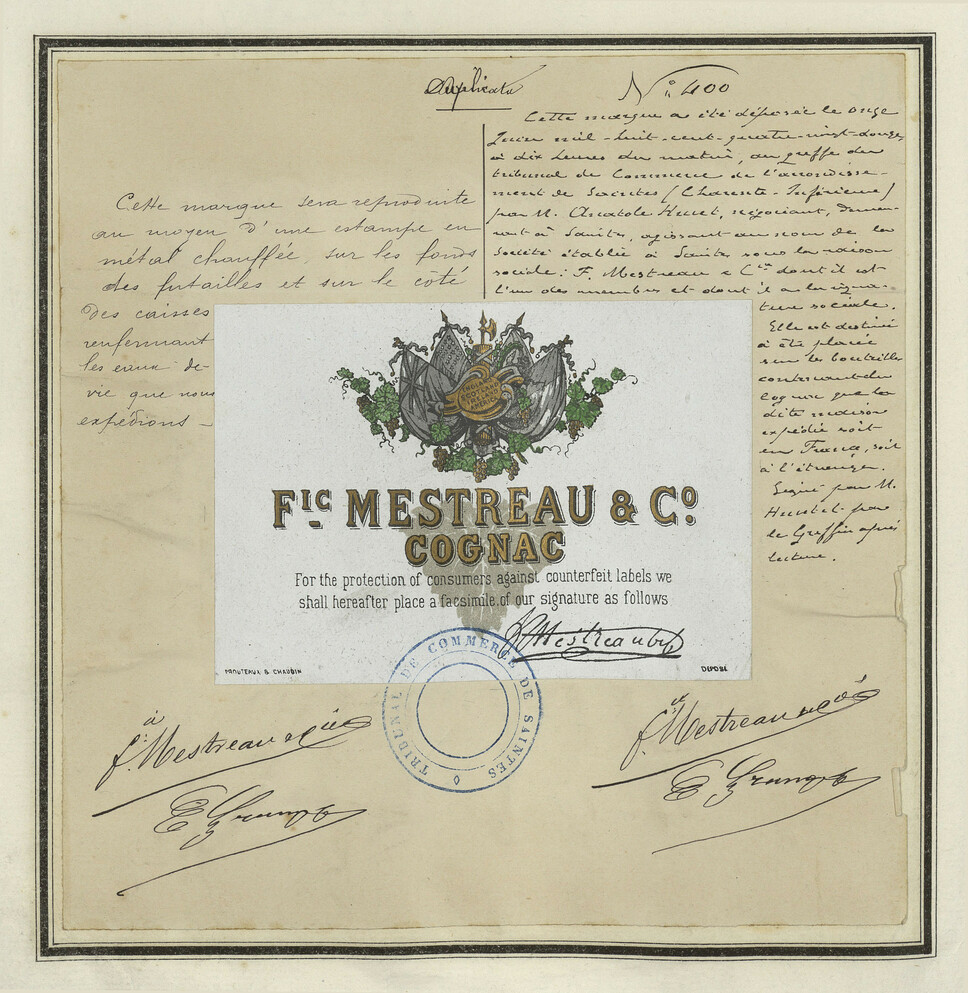 Duplicata
N° 400
Cette marque a été déposée le onze
Juin mil-huit-cent-quatre-vingt-douze,
à dix heures du matin, au greffe du
tribunal de Commerce de l'arrondisse-
ment de Saintes (Charente-Inférieure)
par M. Anatole Huvet, négociant, demeu-
rant à Saintes, agissant au nom de la
Société établie à Saintes sous la raison
sociale: F. Mestreau & Cie dont il est
l'un des membres et dont il a la signa-
ture sociale.
Elle est destinée
à être placée
sur les bouteilles
contenant du
Cognac que la
dite maison
expédie soit
en France, soit
à l'étranger.
Signé par M.
par
le Greffier après
lecture.
Cette marque sera reproduite
au moyen d'une estampe en
métal chauffée, sur les fonds
des futailles et sur le côté
des caisses
renfermant
les eaux-de-
vie que nous
expédions -
INDIA
SCOTLAND
IRELAND
AMERICA
FIC MESTREAU & CO.
COGNAC
For the protection of consumers against counterfeit labels we
shall hereafter place a facsimile of our signature as follows
F. Mestreau & Cie
PROUTEAUX & CHAUBIN
DEPOSÉ
TRIBUNAL DE COMMERCE DE SAINTES
f. Mestreau & Cie
f. Mestreau & Cie